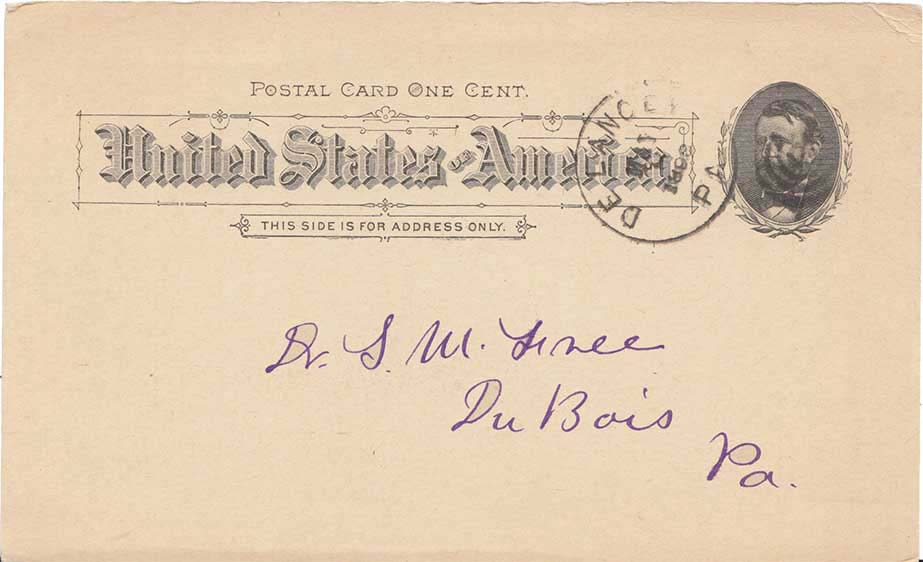 POSTAL CARD ONE CENT.
United States of America
THIS SIDE IS FOR ADDRESS ONLY.
DE LANCEY
MAY
1893
PA
Dr. S. M. Free
Du Bois
Pa.